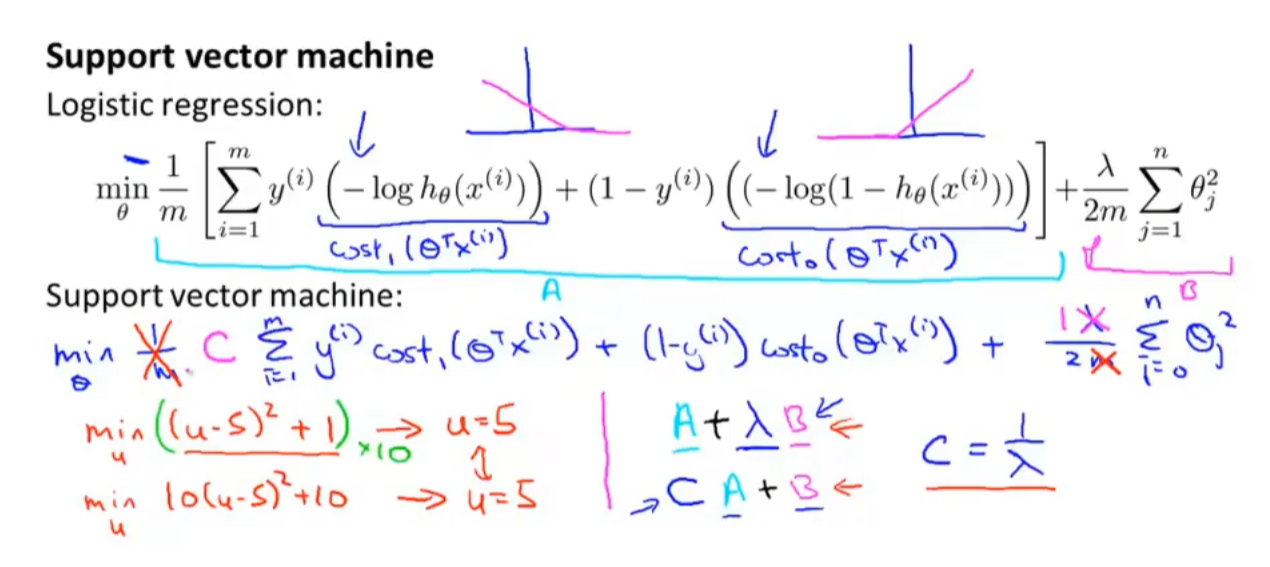 Support vector machine
Logistic regression:
min_θ 1/m [ Σ_{i=1}^{m} y^(i) (−log h_θ(x^(i))) + (1 − y^(i)) ((−log(1 − h_θ(x^(i)))) ] + λ/2m Σ_{j=1}^{n} θ_j^2
cost₁(θᵀx^(i)) cost₀(θᵀx^(i))
A B
Support vector machine:
min_θ 1/m C Σ_{i=1}^{m} y^(i) cost₁(θᵀx^(i)) + (1-y^(i)) cost₀(θᵀx^(i)) + 1 λ/2m Σ_{i=0}^{n} θ_j^2
min_u ((u-5)² + 1) ×10 → u=5
A + λ B ←
C = 1/λ
↕
min_u 10(u-5)²+10 → u=5
→ C A + B ←